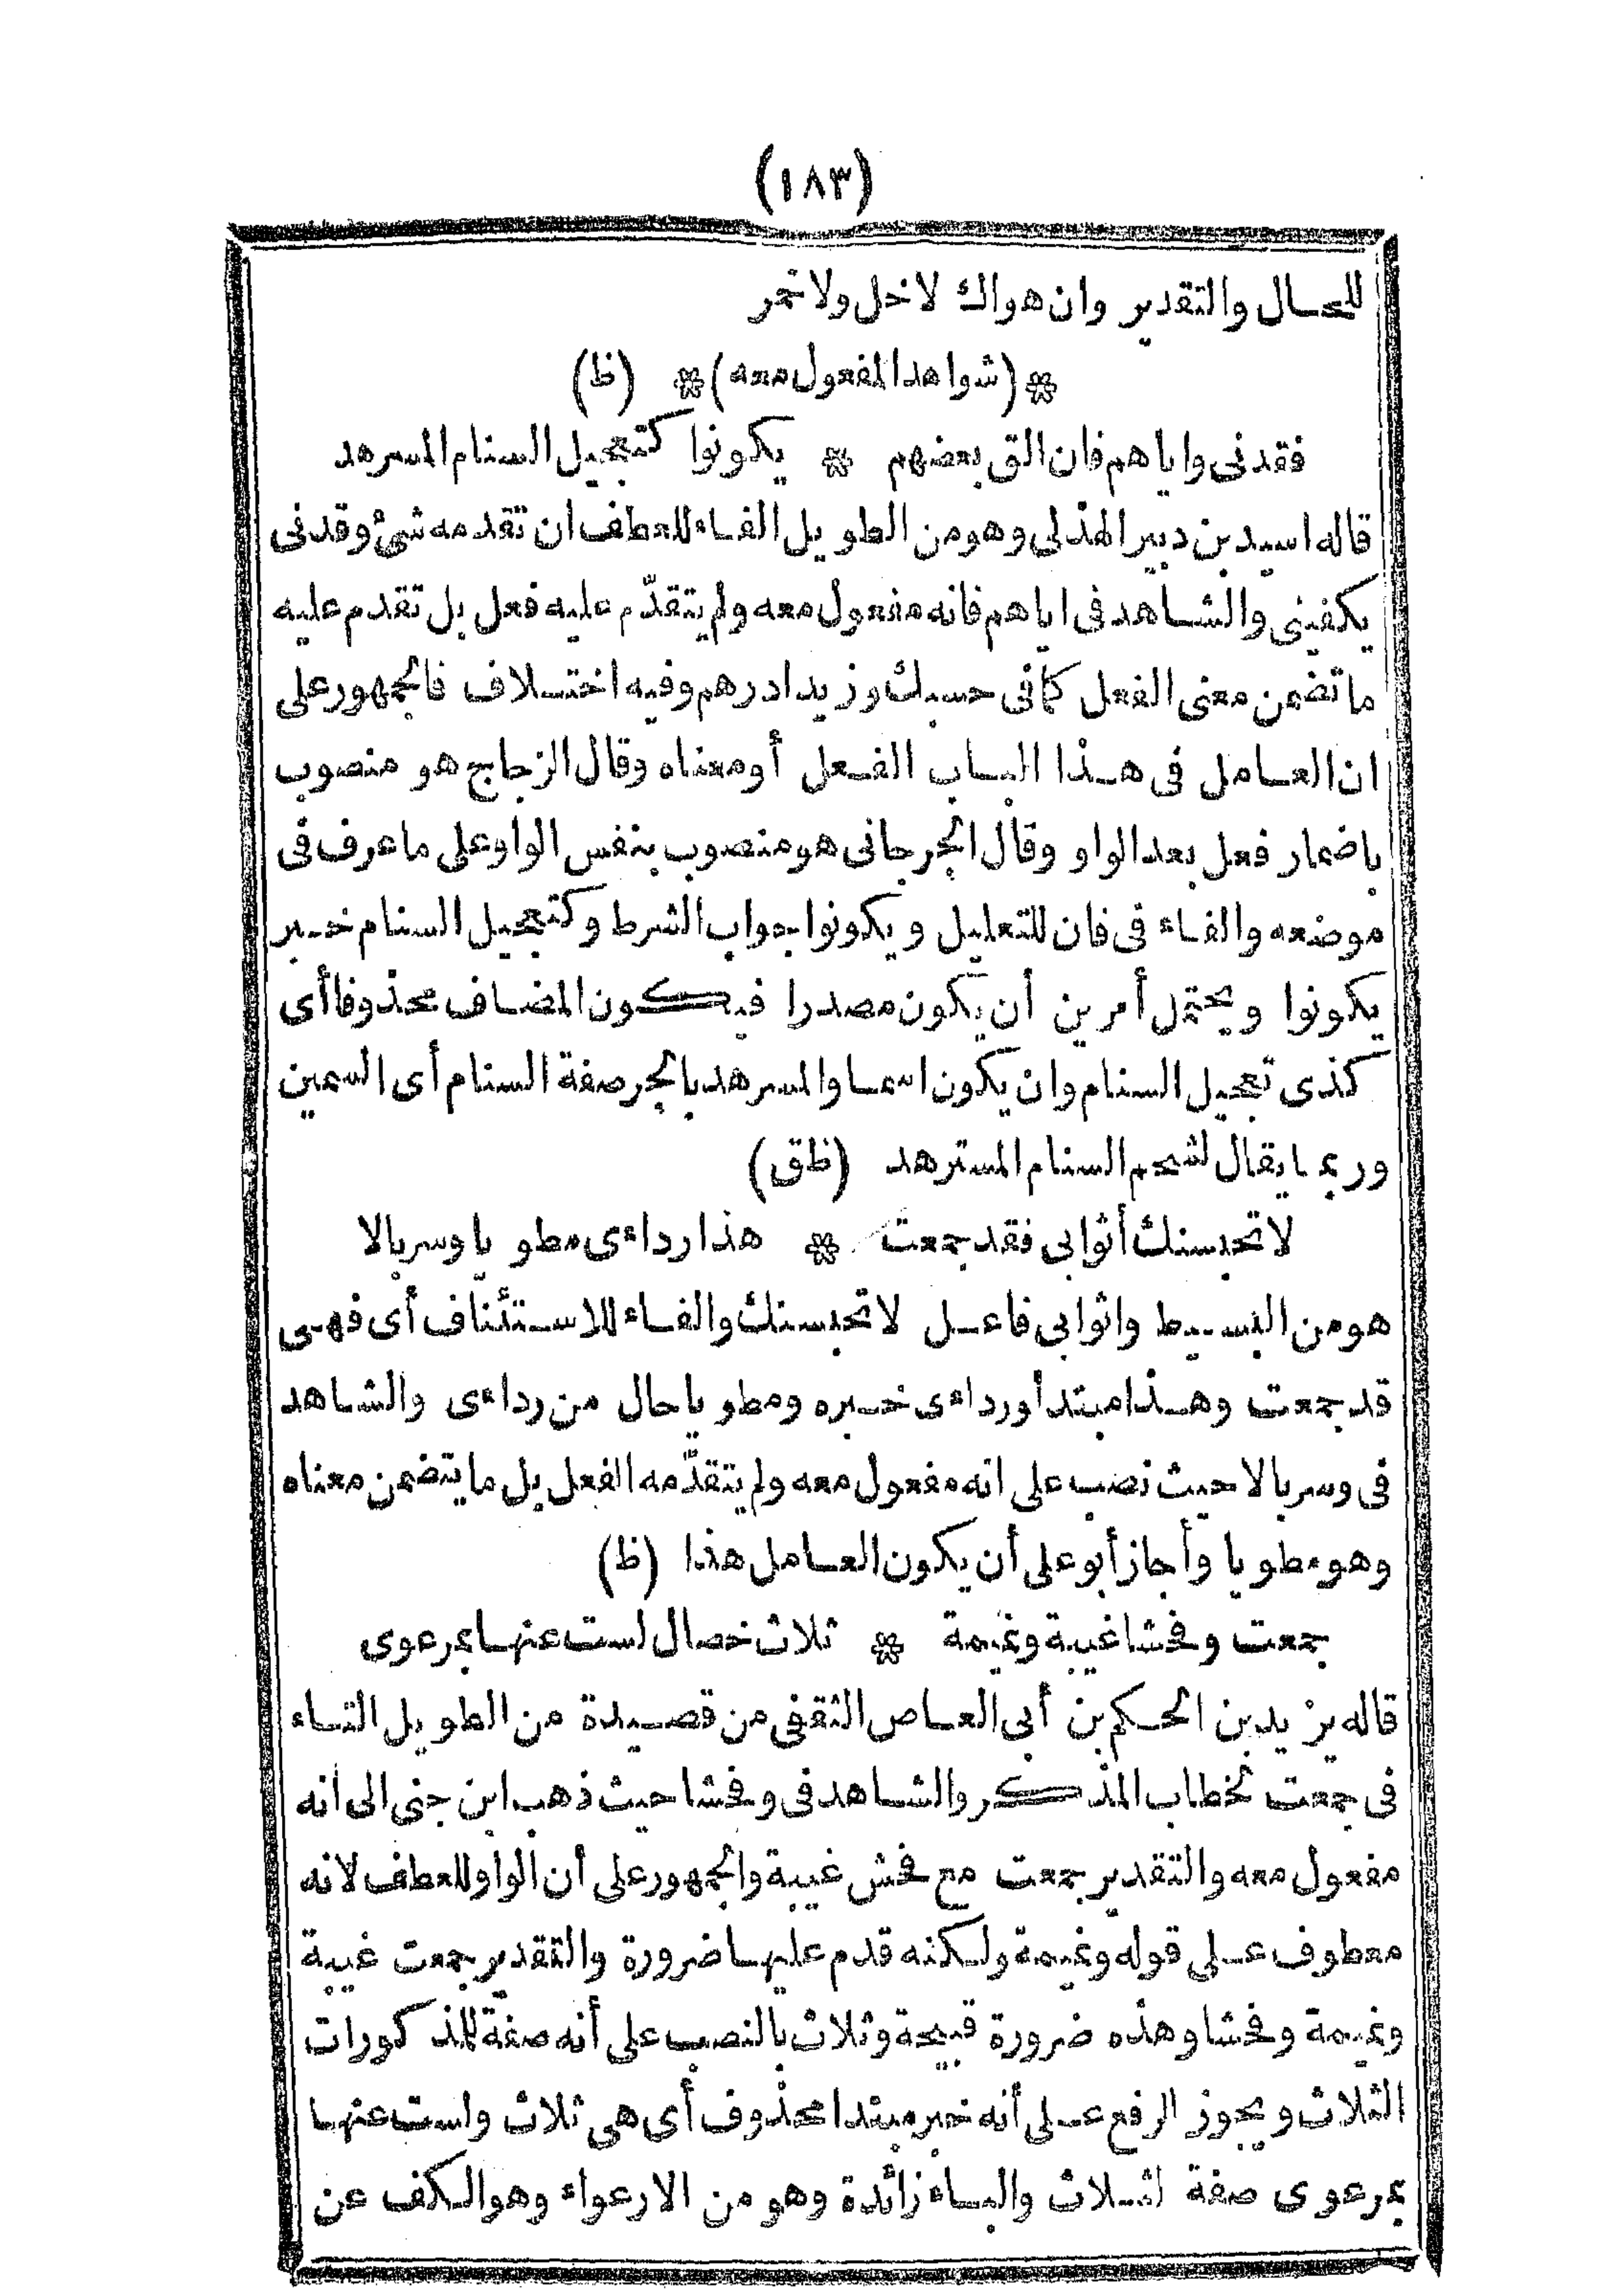 (١٨٣)
للحال والتقدير وان هواك لا خل ولا خمر
* (شواهد المفعول معه) * (ظ)
فقدنى واياهم فان الق بعضهم * يكونوا كتعجيل السنام المسرهد
قاله اسيد بن دبير الهذلى وهو من الطويل الفاء للعطف ان تقدمه شئ وقدنى
يكفينى والشاهد فى اياهم فانه مفعول معه ولم يتقدّم عليه فعل بل تقدم عليه
ما تضمن معنى الفعل كما فى حسبك وزيدا درهم وفيه اختلاف فالجمهور على
ان العامل فى هذا الباب الفعل أو معناه وقال الزجاج هو منصوب
باضمار فعل بعد الواو وقال الجرجانى هو منصوب بنفس الواو على ما عرف فى
موضعه والفاء فى فان للتعليل ويكونوا جواب الشرط وكتعجيل السنام خبر
يكونوا ويحتمل أمرين أن يكون مصدرا فيكون المضاف محذوفا أى
كذى تعجيل السنام وان يكون اسما والمسرهد بالجر صفة السنام أى السمين
وربما يقال لشحم السنام المسترهد (ظق)
لا تحبسنك أثوابى فقد جمعت * هذا رداءى مطويا وسربالا
هو من البسيط واثوابى فاعل لا تحبسنك والفاء للاستئناف أى فهى
قد جمعت وهذا مبتدأ ورداءى خبره ومطويا حال من رداءى والشاهد
فى وسربالا حيث نصب على انه مفعول معه ولم يتقدّمه الفعل بل ما يتضمن معناه
وهو مطويا وأجاز أبو على أن يكون العامل هذا (ظ)
جمعت وفحشا غيبة ونميمة * ثلاث خصال لست عنها بمرعوى
قاله يزيد بن الحكم بن أبى العاص الثقفى من قصيدة من الطويل التاء
فى جمعت لخطاب المذكر والشاهد فى وفحشا حيث ذهب ابن جنى الى أنه
مفعول معه والتقدير جمعت مع فحش غيبة والجمهور على أن الواو للعطف لانه
معطوف على قوله ونميمة ولكنه قدم عليها ضرورة والتقدير جمعت غيبة
ونميمة وفحشا وهذه ضرورة قبيحة وثلاث بالنصب على أنه صفة للمذكورات
الثلاث ويجوز الرفع على أنه خبر مبتدا محذوف أى هى ثلاث ولست عنها
بمرعوى صفة لثلاث والباء زائدة وهو من الارعواء وهو الكف عن